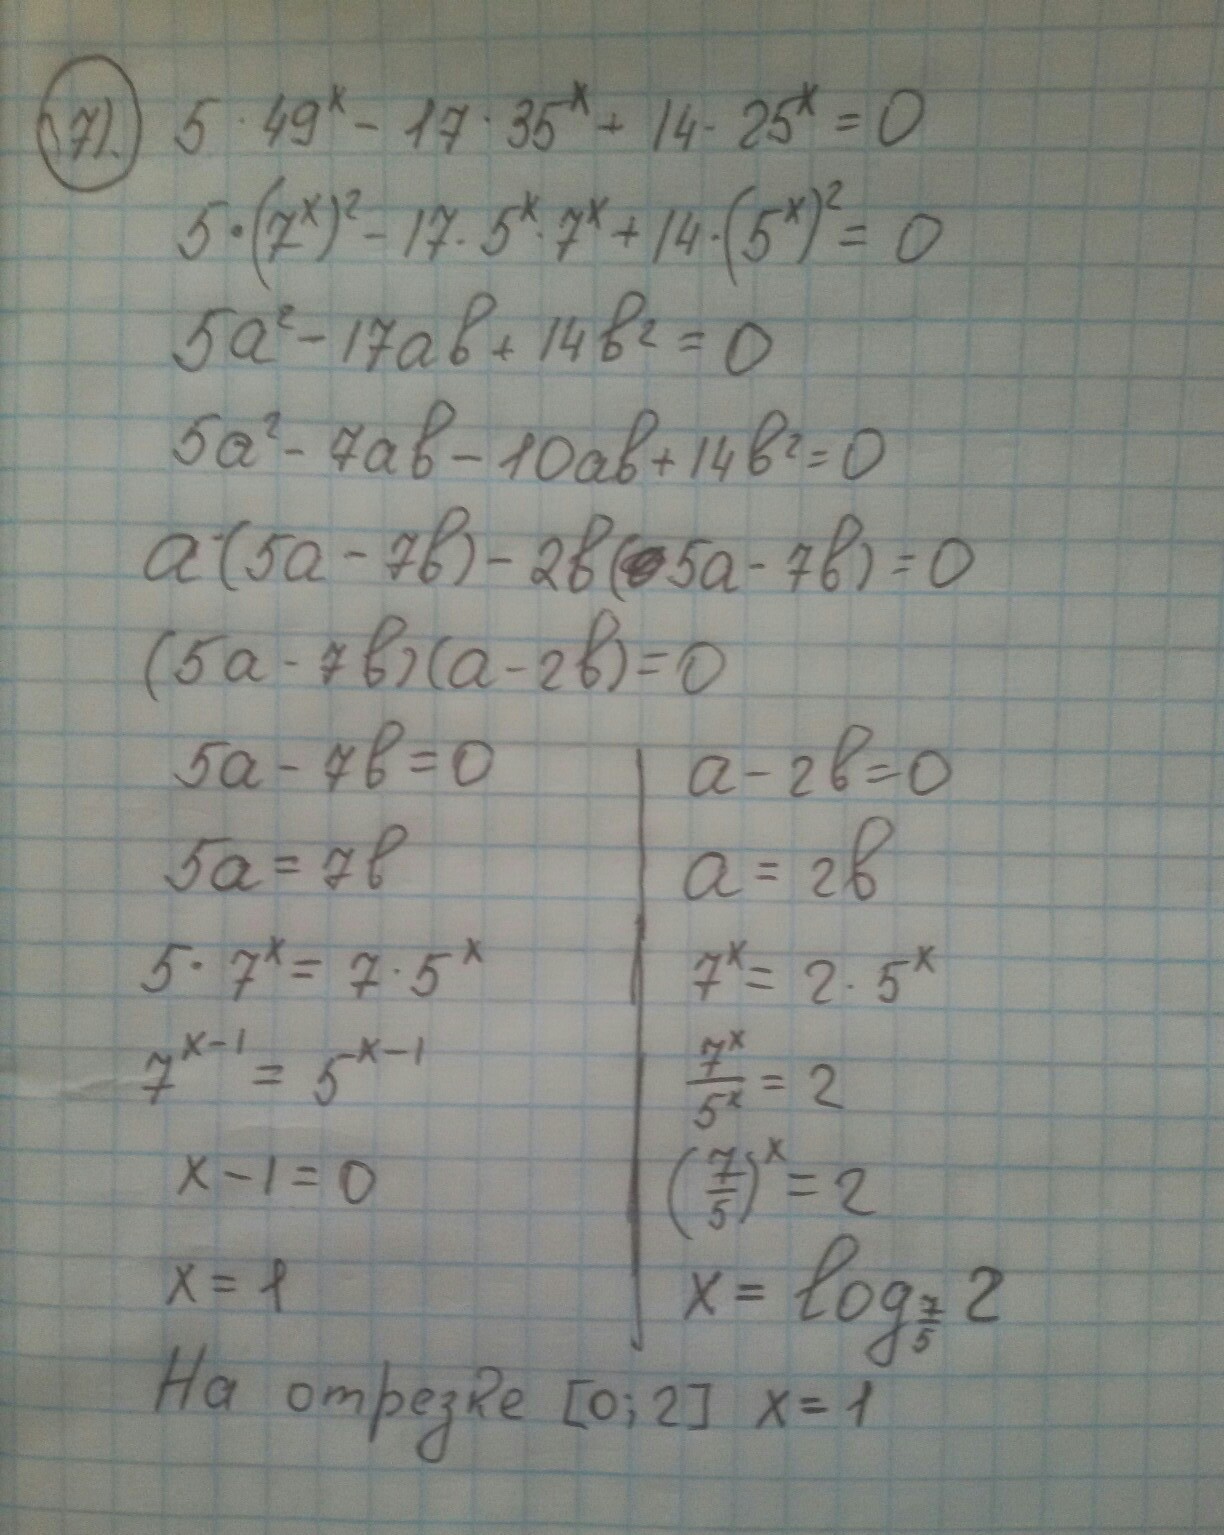 71. 5 · 49^x - 17 · 35^x + 14 · 25^x = 0
5 · (7^x)² - 17 · 5^x · 7^x + 14 · (5^x)² = 0
5a² - 17aв + 14в² = 0
5a² - 7aв - 10aв + 14в² = 0
a · (5a - 7в) - 2в(5a - 7в) = 0
(5a - 7в)(a - 2в) = 0
5a - 7в = 0
5a = 7в
5 · 7^x = 7 · 5^x
7^(x-1) = 5^(x-1)
x - 1 = 0
x = 1
a - 2в = 0
a = 2в
7^x = 2 · 5^x
7^x/5^x = 2
(7/5)^x = 2
x = log_(7/5) 2
На отрезке [0; 2] x = 1